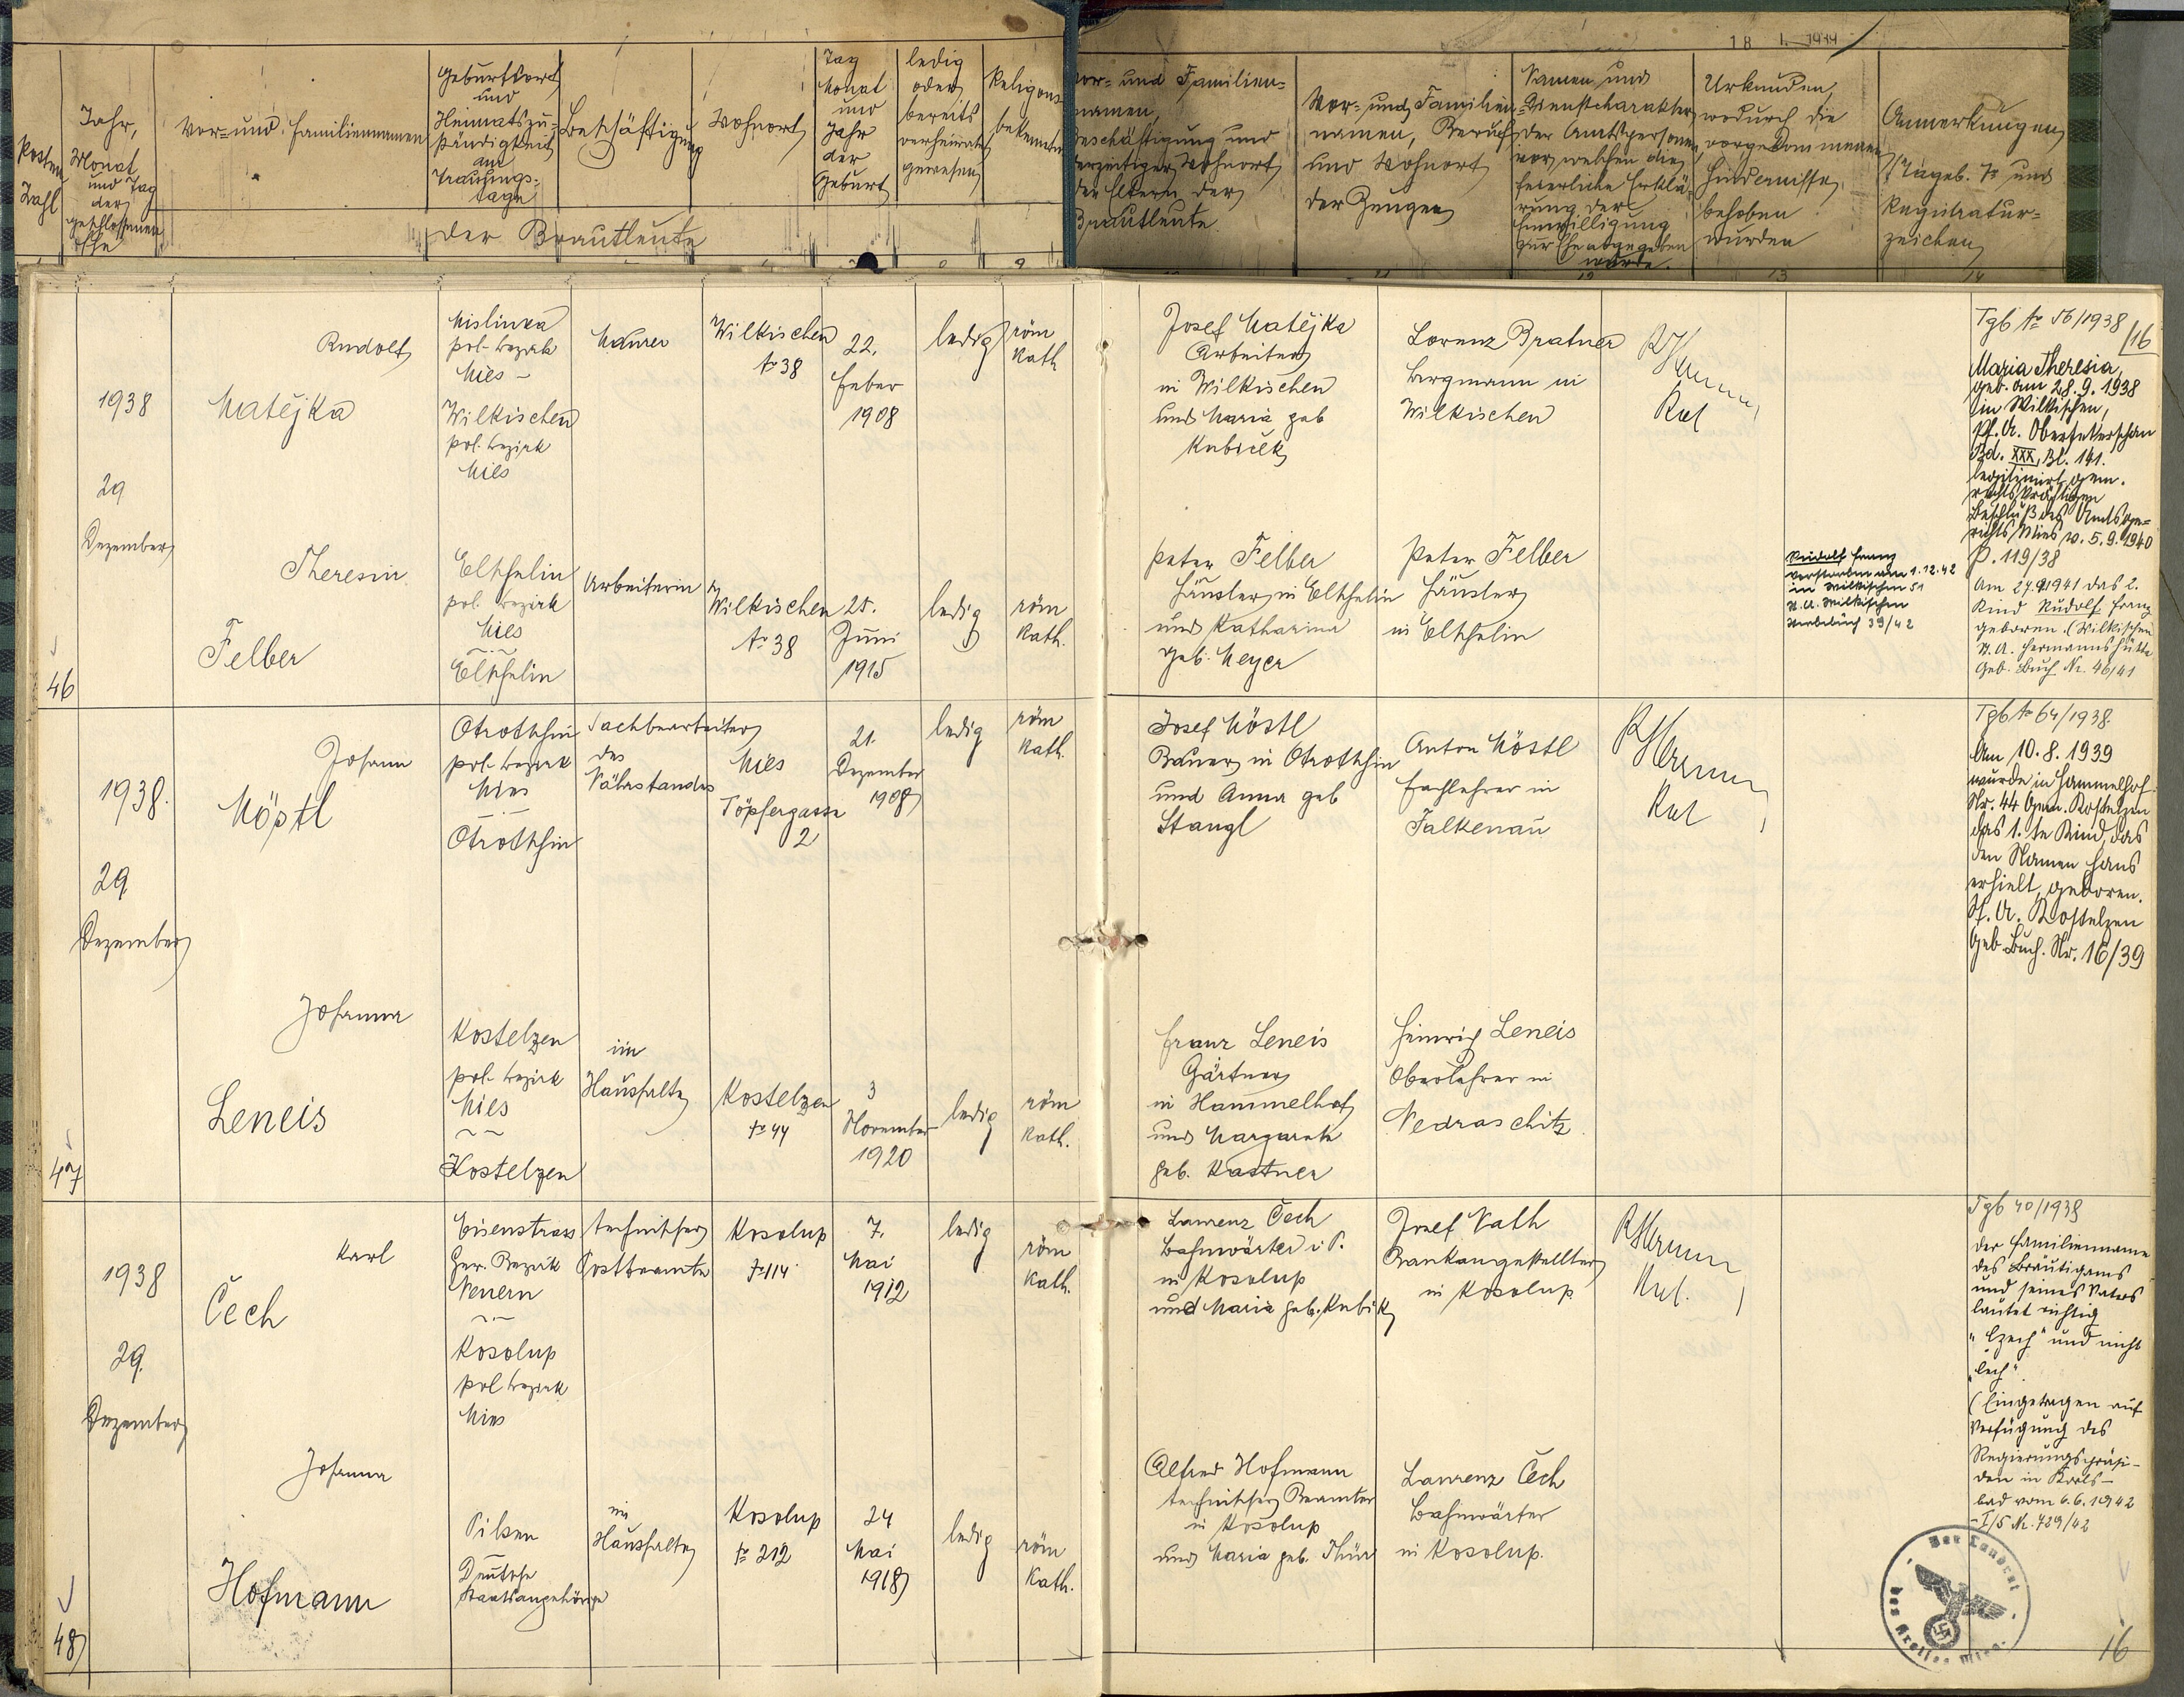 18 1. 1939
Posten
Zahl
Jahr,
Monat
und Tag
der
geschlossenen
Ehe
Vor- und Familiennamen
Geburtsort
und
Heimatszu-
ständigkeit
am
Trauungs-
tage
Beschäftigung
Wohnort
Tag
Monat
und
Jahr
der
Geburt
ledig
oder
bereits
verheiratet
gewesen
Religions
bekenntnis
der Brautleute
Vor- und Familien-
namen,
Beschäftigung und
derzeitiger Wohnort
der Eltern der
Brautleute
Vor- und Familien-
namen, Beruf
und Wohnort
der Zeugen
Namen und
Dienstcharakter
der Amtsperson
vor welcher die
feierliche Erklä-
rung der
Einwilligung
zur Ehe abgegeben
wurde.
Urkunden,
wodurch die
vorgekommenen
Hindernisse
behoben
wurden
Anmerkungen
Tageb. No und
Registratur-
zeichen
9
11
12
13
14
46
1938
29
Dezember
Rudolf
Matějka
Mislinka
pol. bezirk
Mies -
Wilkischen
pol. bezirk
Mies
Maurer
Wilkischen
No 38
22.
Feber
1908
ledig
röm
kath
Josef Matějka
Arbeiter
in Wilkischen
und Maria geb
Kubiček
Lorenz Bratner
Bergmann in
Wilkischen
Tgb No 56/1938
16
Maria Theresia,
geb. am 28.9.1938
in Wilkischen,
Pf. A. Obersekerschan
Bd. XXX, Bl. 141.
legitimiert gem.
rechtskräftigen
Beschluß des Amtsge-
richts Mies v. 5.9.1940
P. 119/38
Am 27.9.1941 das 2.
Kind Rudolf Franz
geboren. (Wilkischen
St. A. Hermannshütte
Geb. Buch Nr. 46/41
Rudolf Franz
verstorben am 1.12.42
in Wilkischen 51
St. A. Wilkischen
Sterbebuch 39/42
Theresia
Felber
Elhhelin
pol. bezirk
Mies
Elhhelin
Arbeiterin
Wilkischen
No 38
25.
Juni
1915
ledig
röm
kath.
Peter Felber
Häusler in Elhhelin
und Katharina
geb. Meyer
Peter Felber
Häusler
in Elhhelin
47
1938.
29
Dezember
Johann
Möstl
Otrotschin
pol. bezirk
Mies
Otrotschin
Sachbearbeiter
des
Nährstandes
Mies
Töpfergasse
2
21.
Dezember
1908
ledig
röm
kath.
Josef Möstl
Bauer in Otrotschin
und Anna geb
Stangl
Anton Möstl
Fachlehrer in
Falkenau
Tgb No 64/1938.
Am 10.8.1939
wurde in Hammelhof
Nr. 44 Gem. Kostelzen
das 1.te Kind, das
den Namen Hans
erhielt, geboren.
St. A. Kostelzen
Geb. Buch. Nr. 16/39
Johanna
Leneis
Kostelzen
pol. bezirk
Mies
Kostelzen
im
Haushalte
Kostelzen
No 44
3
November
1920
ledig
röm
kath.
Franz Leneis
Gärtner
in Hammelhof
und Margarete
geb. Kastner
Heinrich Leneis
Oberlehrer in
Nedraschitz
48
1938
29.
Dezember
Karl
Čech
Eisenstrass
Ger. Bezirk
Neuern
Kosolup
pol bezirk
Mies
technischer
Postbeamte
Kosolup
No 114
7.
Mai
1912
ledig
röm
kath.
Laurenz Čech
Bahnwärter i. P.
in Kosolup
und Maria geb. Kubik
Josef Vath
Bankangestellter
in Kosolup
Tgb 40/1938
Der Familienname
des Bräutigams
und seines Vaters
lautet richtig
"Czech" und nicht
"Čech".
(Eingetragen auf
Verfügung des
Regierungspräsi-
den in Karls-
bad vom 6.6.1942
- I/5 Nr. 729/42
Johanna
Hofmann
Pilsen
Deutsche
Staatsangehörige
im
Haushalte
Kosolup
No 212
24
Mai
1918
ledig
röm
kath.
Alfred Hofmann
technischer Beamter
in Kosolup
und Maria geb. Thür
Laurenz Čech
Bahnwärter
in Kosolup.
Der Landrat
des Kreises Mies
16